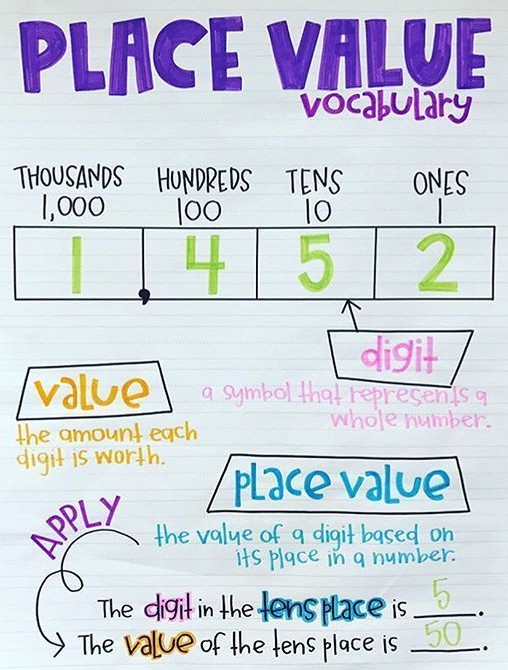 PLACE VALUE
vocabulary
THOUSANDS HUNDREDS TENS ONES
1,000 100 10 1
1,452
digit
a symbol that represents a
whole number.
value
the amount each
digit is worth.
place value
the value of a digit based on
its place in a number.
APPLY
The digit in the tens place is 5.
The value of the tens place is 50.